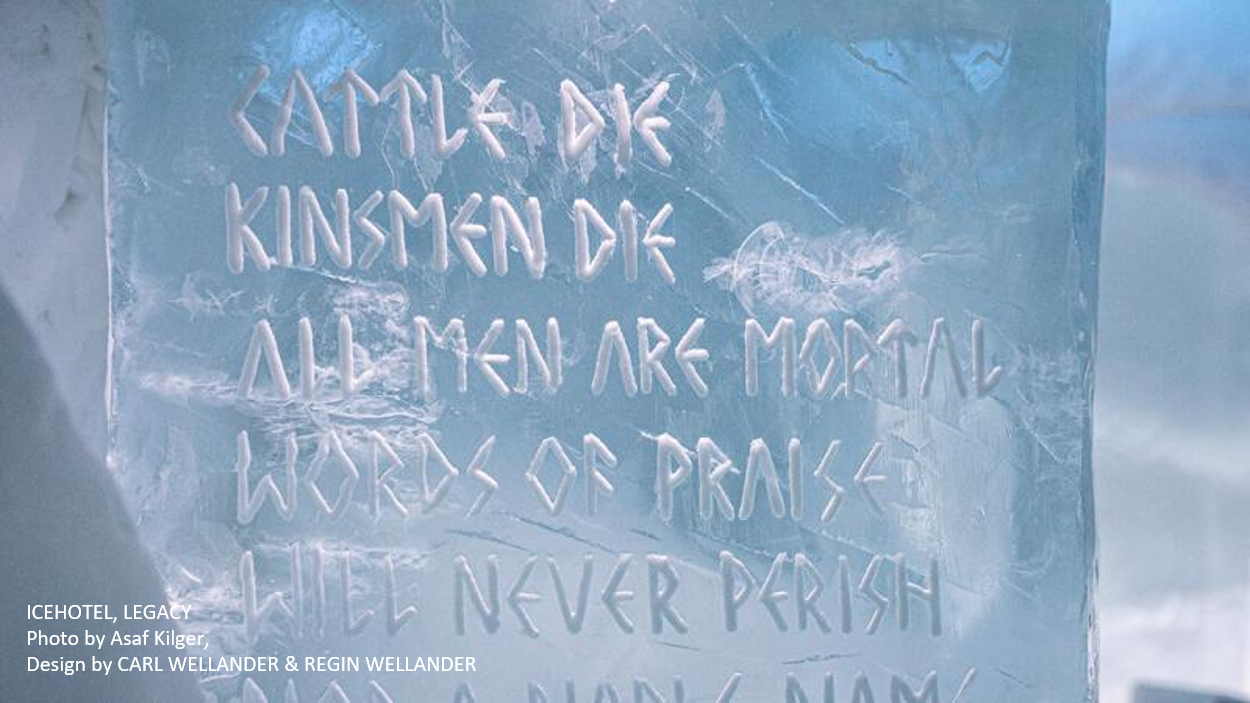 CATTLE DIE
KINSMEN DIE
ALL MEN ARE MORTAL
WORDS OF PRAISE
WILL NEVER PERISH
NOR A NOBLE NAME
ICEHOTEL, LEGACY
Photo by Asaf Kilger,
Design by CARL WELLANDER & REGIN WELLANDER